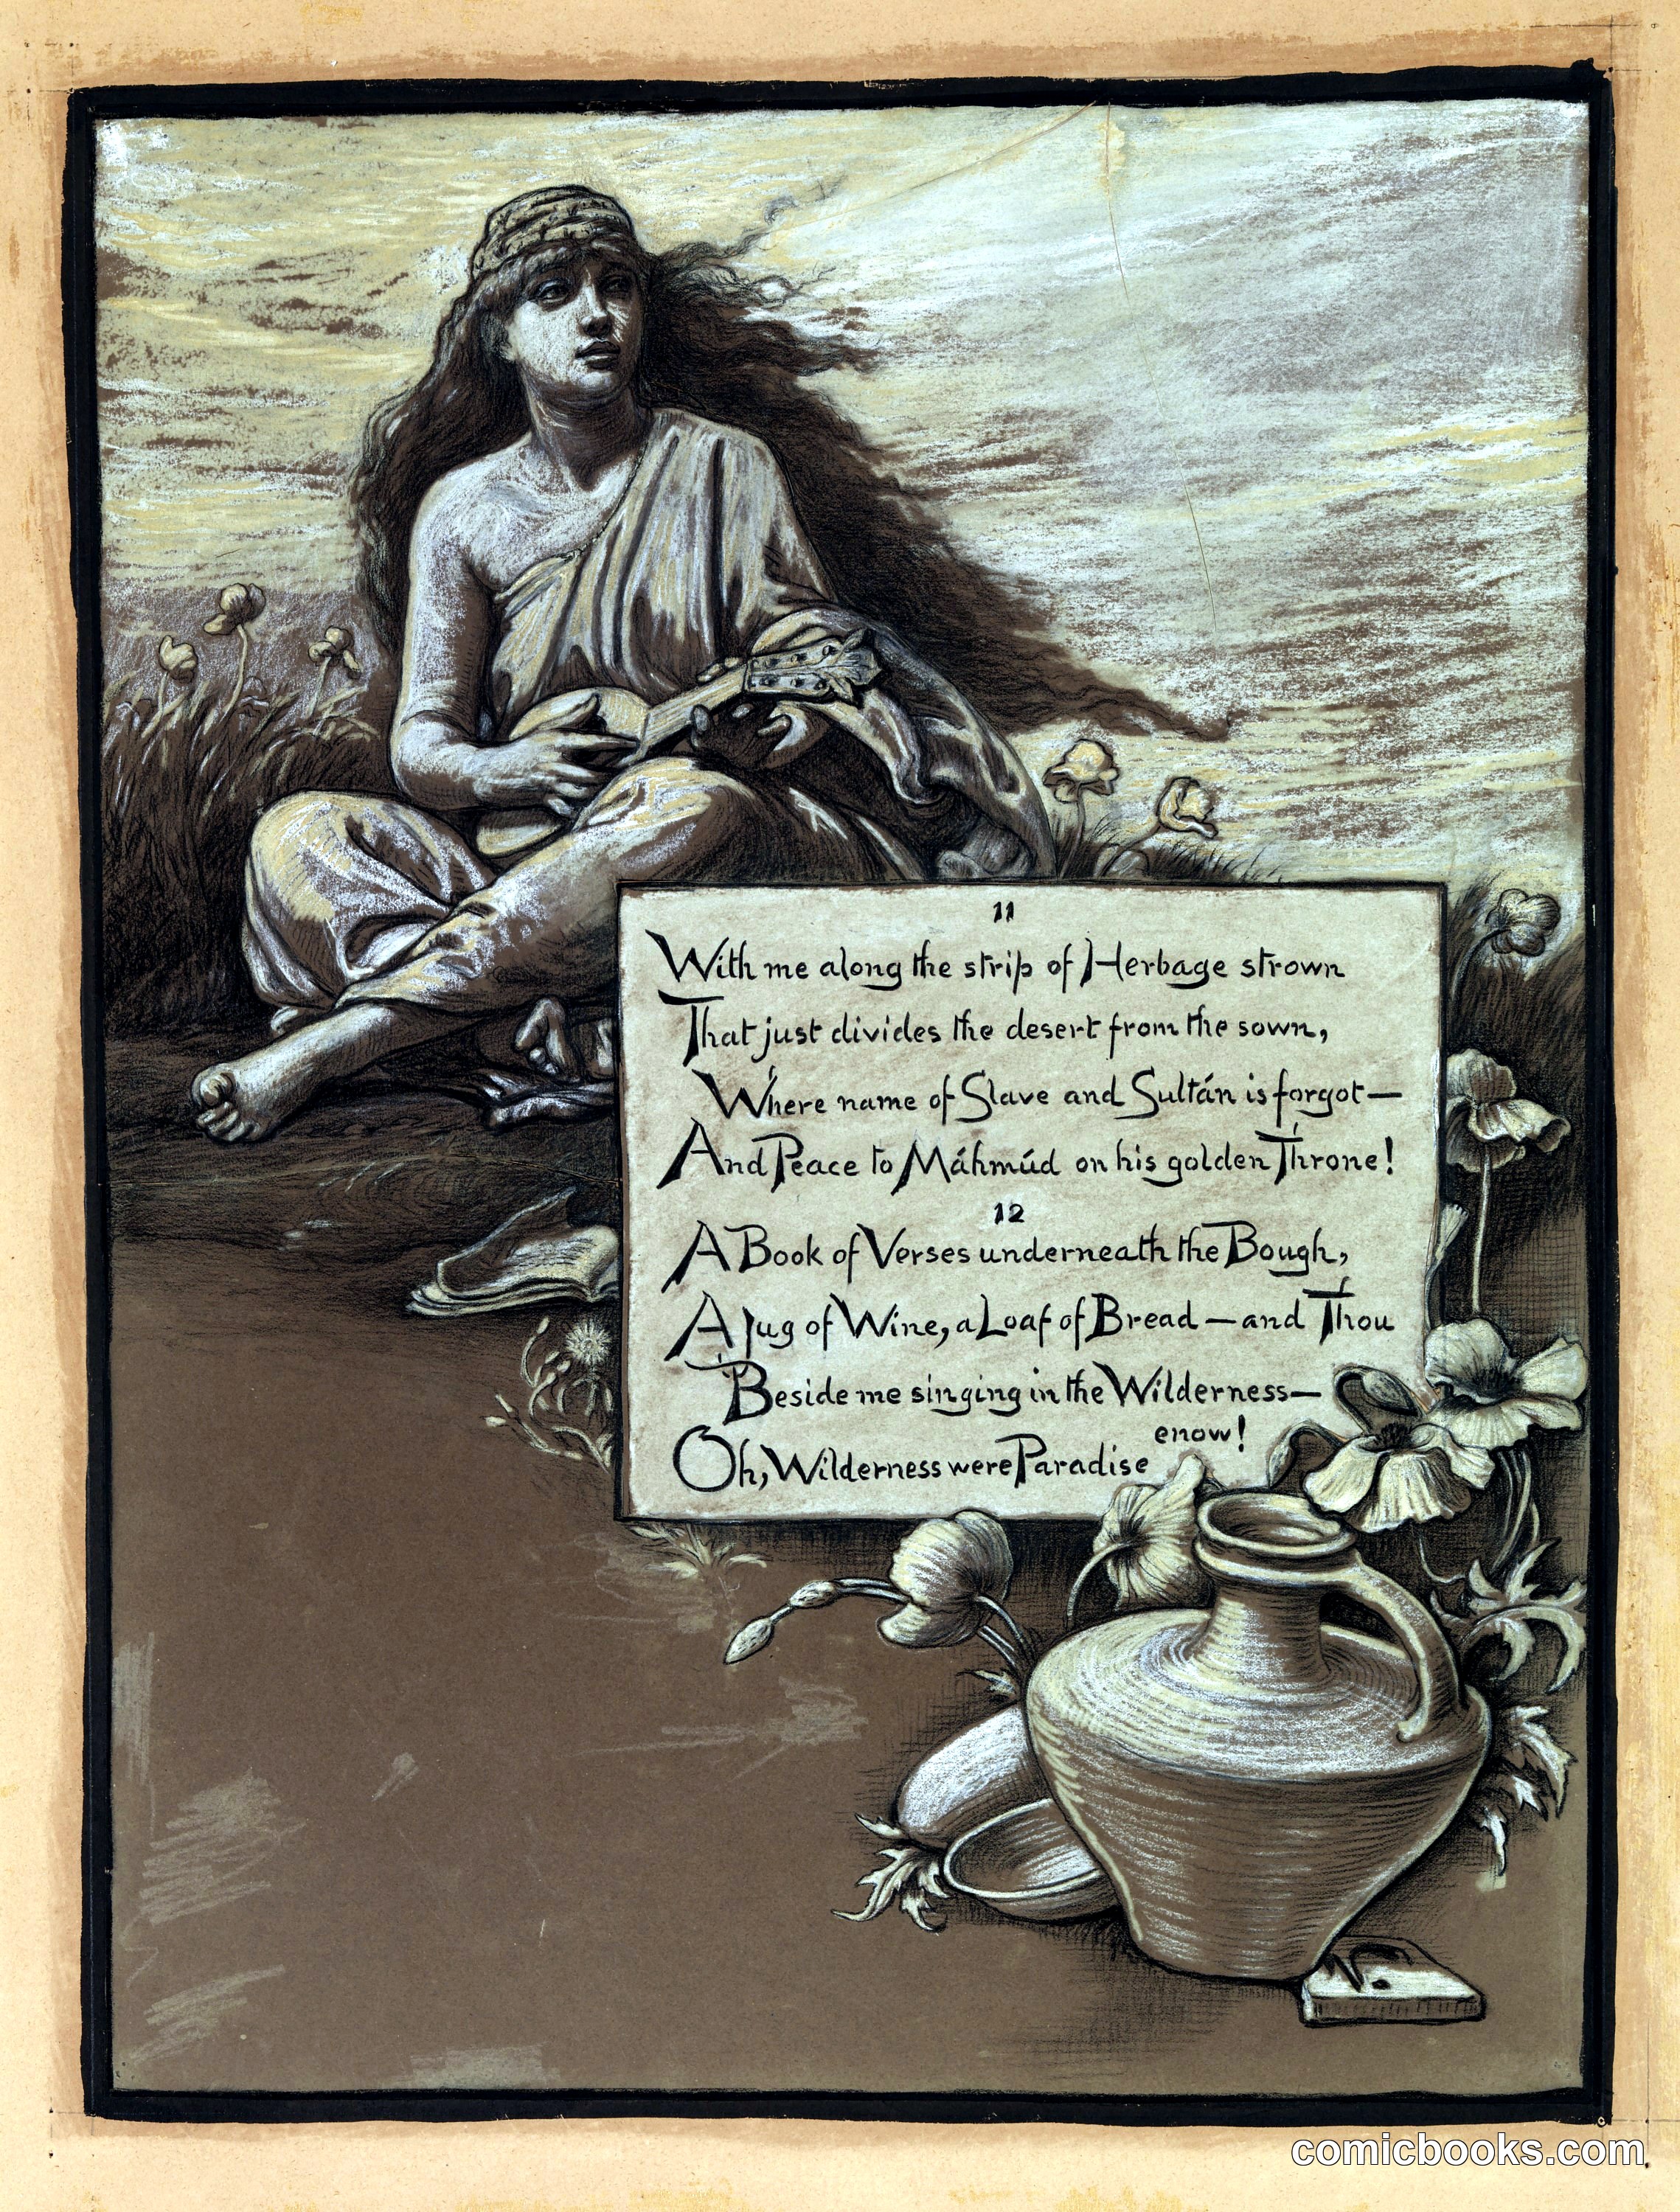 11
With me along the strip of Herbage strown
That just divides the desert from the sown,
Where name of Slave and Sultán is forgot—
And Peace to Máhmúd on his golden Throne!
12
A Book of Verses underneath the Bough,
A Jug of Wine, a Loaf of Bread—and Thou
Beside me singing in the Wilderness—
Oh, Wilderness were Paradise enow!
comicbooks.com